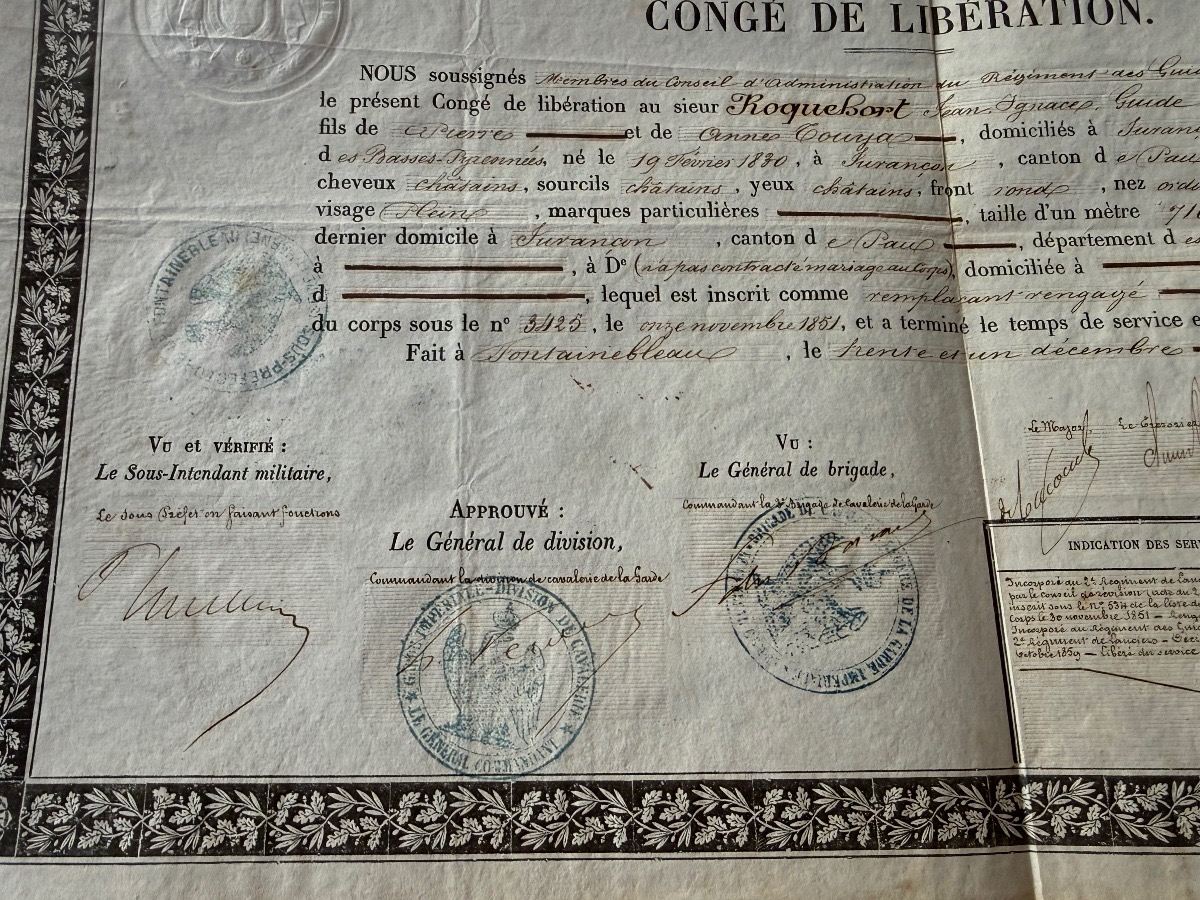 CONGÉ DE LIBÉRATION.
NOUS soussignés Membres du Conseil d'Administration du Régiment des Gui
le présent Congé de libération au sieur Roquehort Jean Ignace, Guide
fils de Pierre et de Anne Touya, domiciliés à Juran
des Basses-Pyrennées, né le 19 Février 1830, à Jurançon, canton de Pau
cheveux châtains, sourcils châtains, yeux châtains, front rond, nez ord
visage Plein, marques particulières, taille d'un mètre 71
dernier domicile à Jurançon, canton de Pau, département des
à , à De (n'a pas contracté mariage au Corps), domiciliée à
d , lequel est inscrit comme remplaçant rengagé
du corps sous le no 3425, le onze novembre 1851, et a terminé le temps de service
Fait à Fontainebleau, le trente et un décembre
FONTAINEBLEAU
SOUS-PRÉFECTURE
VU et VÉRIFIÉ :
Le Sous-Intendant militaire,
Le Sous Préfet en faisant fonctions
APPROUVÉ :
Le Général de division,
Commandant la division de cavalerie de la Garde
GARDE IMPÉRIALE - DIVISION DE CAVALERIE
LE GÉNÉRAL COMMANDANT
VU :
Le Général de brigade,
Commandant la Brigade de Cavalerie de la Garde
BRIGADE DE CAVALERIE DE LA GARDE IMPÉRIALE
Le Major Le Trésorier
INDICATION DES SER
Incorporé au 2e Régiment de Lanc
par le conseil de révision
inscrit sous le No 534 de la liste
Corps le 30 novembre 1851 — Reng
Incorporé au Régiment des Gui
2e Régiment de Lanciers —
Octobre 1859 — Libéré du service